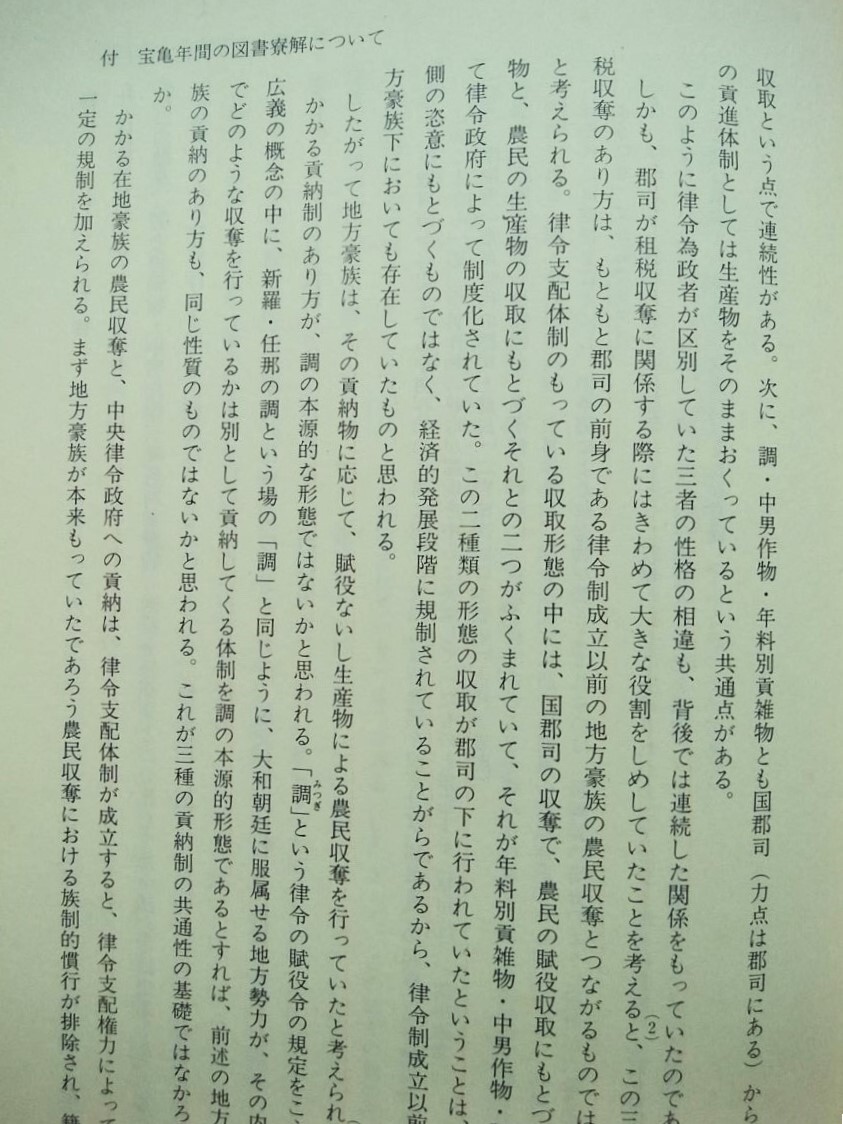 付　宝亀年間の図書寮解について
収取という点で連続性がある。次に、調・中男作物・年料別貢雑物とも国郡司（力点は郡司にある）から
の貢進体制としては生産物をそのままおくっているという共通点がある。
このように律令為政者が区別していた三者の性格の相違も、背後では連続した関係をもっていたのであ
しかも、郡司が租税収奪に関係する際にはきわめて大きな役割をしめしていたことを考えると、この三
税収奪のあり方は、もともと郡司の前身である律令制成立以前の地方豪族の農民収奪とつながるものでは
と考えられる。律令支配体制のもっている収取形態の中には、国郡司の収奪で、農民の賦役収取にもとづ
物と、農民の生産物の収取にもとづくそれとの二つがふくまれていて、それが年料別貢雑物・中男作物・
て律令政府によって制度化されていた。この二種類の形態の収取が郡司の下に行われていたということは、
側の恣意にもとづくものではなく、経済的発展段階に規制されていることがらであるから、律令制成立以前
方豪族下においても存在していたものと思われる。
したがって地方豪族は、その貢納物に応じて、賦役ないし生産物による農民収奪を行っていたと考えられ
かかる貢納制のあり方が、調の本源的な形態ではないかと思われる。「調」という律令の賦役令の規定をこ
みつぎ
広義の概念の中に、新羅・任那の調という場の「調」と同じように、大和朝廷に服属せる地方勢力が、その内
でどのような収奪を行っているかは別として貢納してくる体制を調の本源的形態であるとすれば、前述の地方
族の貢納のあり方も、同じ性質のものではないかと思われる。これが三種の貢納制の共通性の基礎ではなかろ
か。
かかる在地豪族の農民収奪と、中央律令政府への貢納は、律令支配体制が成立すると、律令支配権力によって
一定の規制を加えられる。まず地方豪族が本来もっていたであろう農民収奪における族制的慣行が排除され、籍
（2）